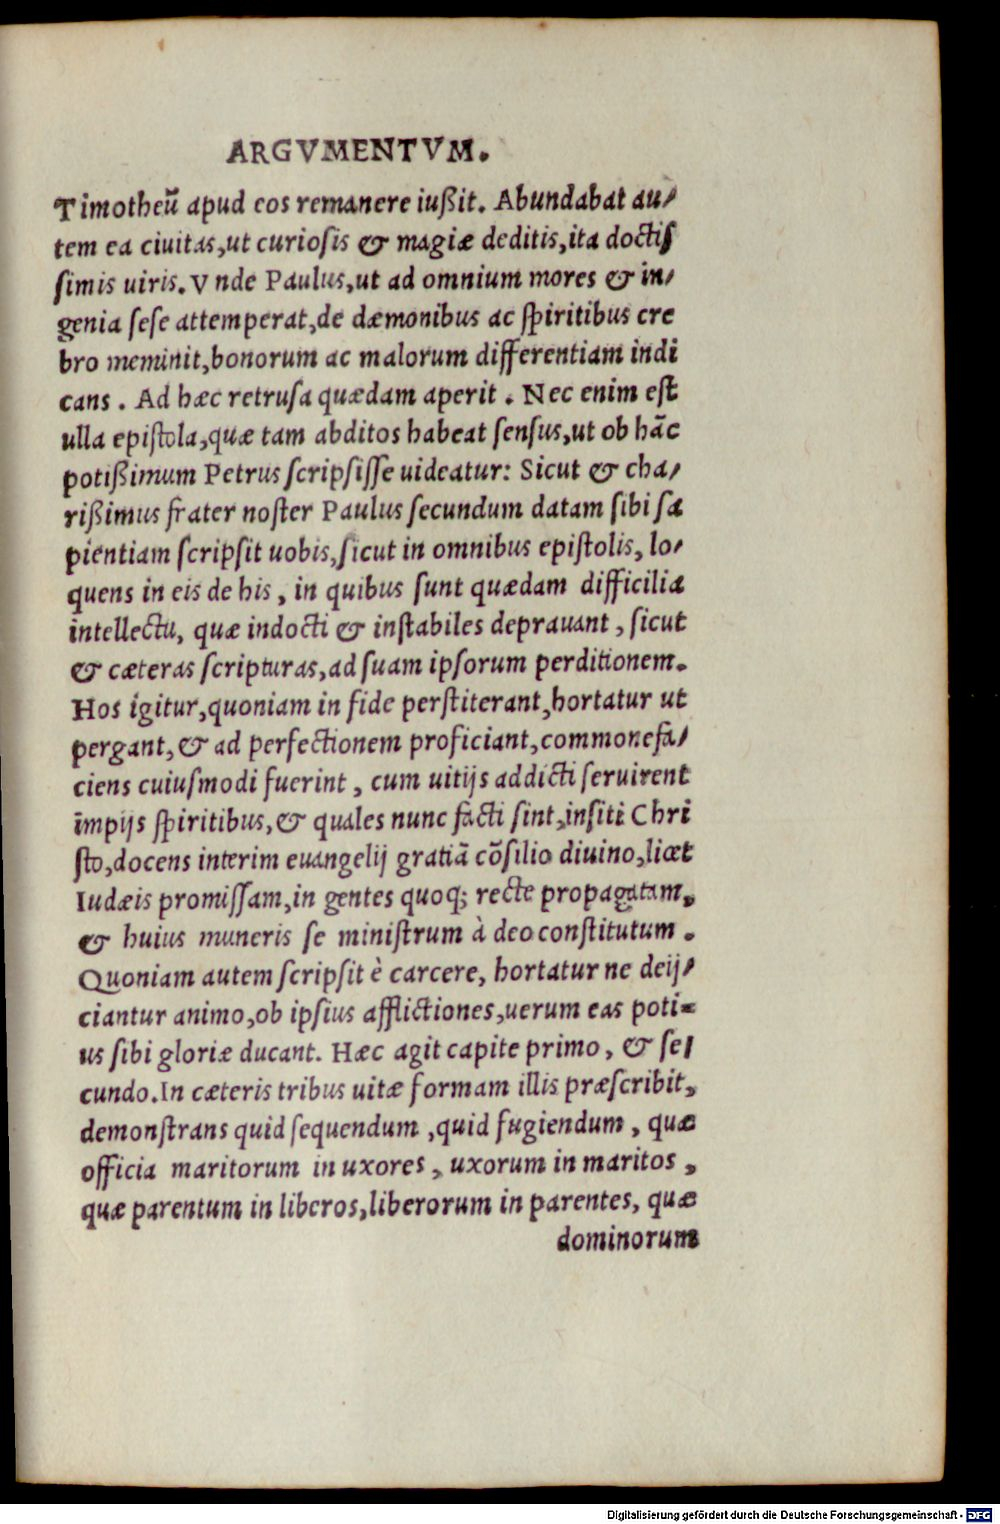 ARGVMENTVM.
Timotheū apud eos remanere iußit. Abundabat au⸗
tem ea ciuitas,ut curiosis & magiæ deditis,ita doctiſ
ſimis uiris.Vnde Paulus,ut ad omnium mores & in⸗
genia ſeſe attemperat,de dæmonibus ac ſpiritibus cre
bro meminit,bonorum ac malorum differentiam indi
cans . Ad hæc retruſa quædam aperit . Nec enim eſt
ulla epiſtola,quæ tam abditos habeat ſenſus,ut ob hāc
potißimum Petrus ſcripſiſſe uideatur: Sicut & cha⸗
rißimus frater noſter Paulus ſecundum datam ſibi ſa
pientiam ſcripſit uobis,ſicut in omnibus epiſtolis, lo⸗
quens in eis de his , in quibus ſunt quædam difficilia
intellectu, quæ indocti & inſtabiles deprauant , ſicut
& cæteras ſcripturas,ad ſuam ipſorum perditionem.
Hos igitur,quoniam in fide perſtiterant,hortatur ut
pergant,& ad perfectionem proficiant,commonefa⸗
ciens cuiuſmodi fuerint , cum uitijs addicti ſeruirent
impijs ſpiritibus,& quales nunc facti ſint,inſiti Chri
ſto,docens interim euangelij gratiā cōſilio diuino,licet
Iudæis promiſſam,in gentes quoq; recte propagatam,
& huius muneris ſe miniſtrum à deo conſtitutum .
Quoniam autem ſcripſit è carcere, hortatur ne deij⸗
ciantur animo,ob ipſius afflictiones,uerum eas poti=
us ſibi gloriæ ducant. Hæc agit capite primo, & ſe⸗
cundo.In cæteris tribus uitæ formam illis præſcribit,
demonſtrans quid ſequendum ,quid fugiendum , quæ
officia maritorum in uxores , uxorum in maritos ,
quæ parentum in liberos,liberorum in parentes, quæ
dominorum
Digitalisierung gefördert durch die Deutsche Forschungsgemeinschaft - DFG